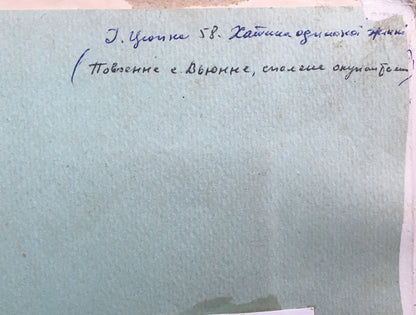 І. Цюпка 58. Хатина одинокої жінки
(Повоєнне с. Вьюнне, спалене окупантами)